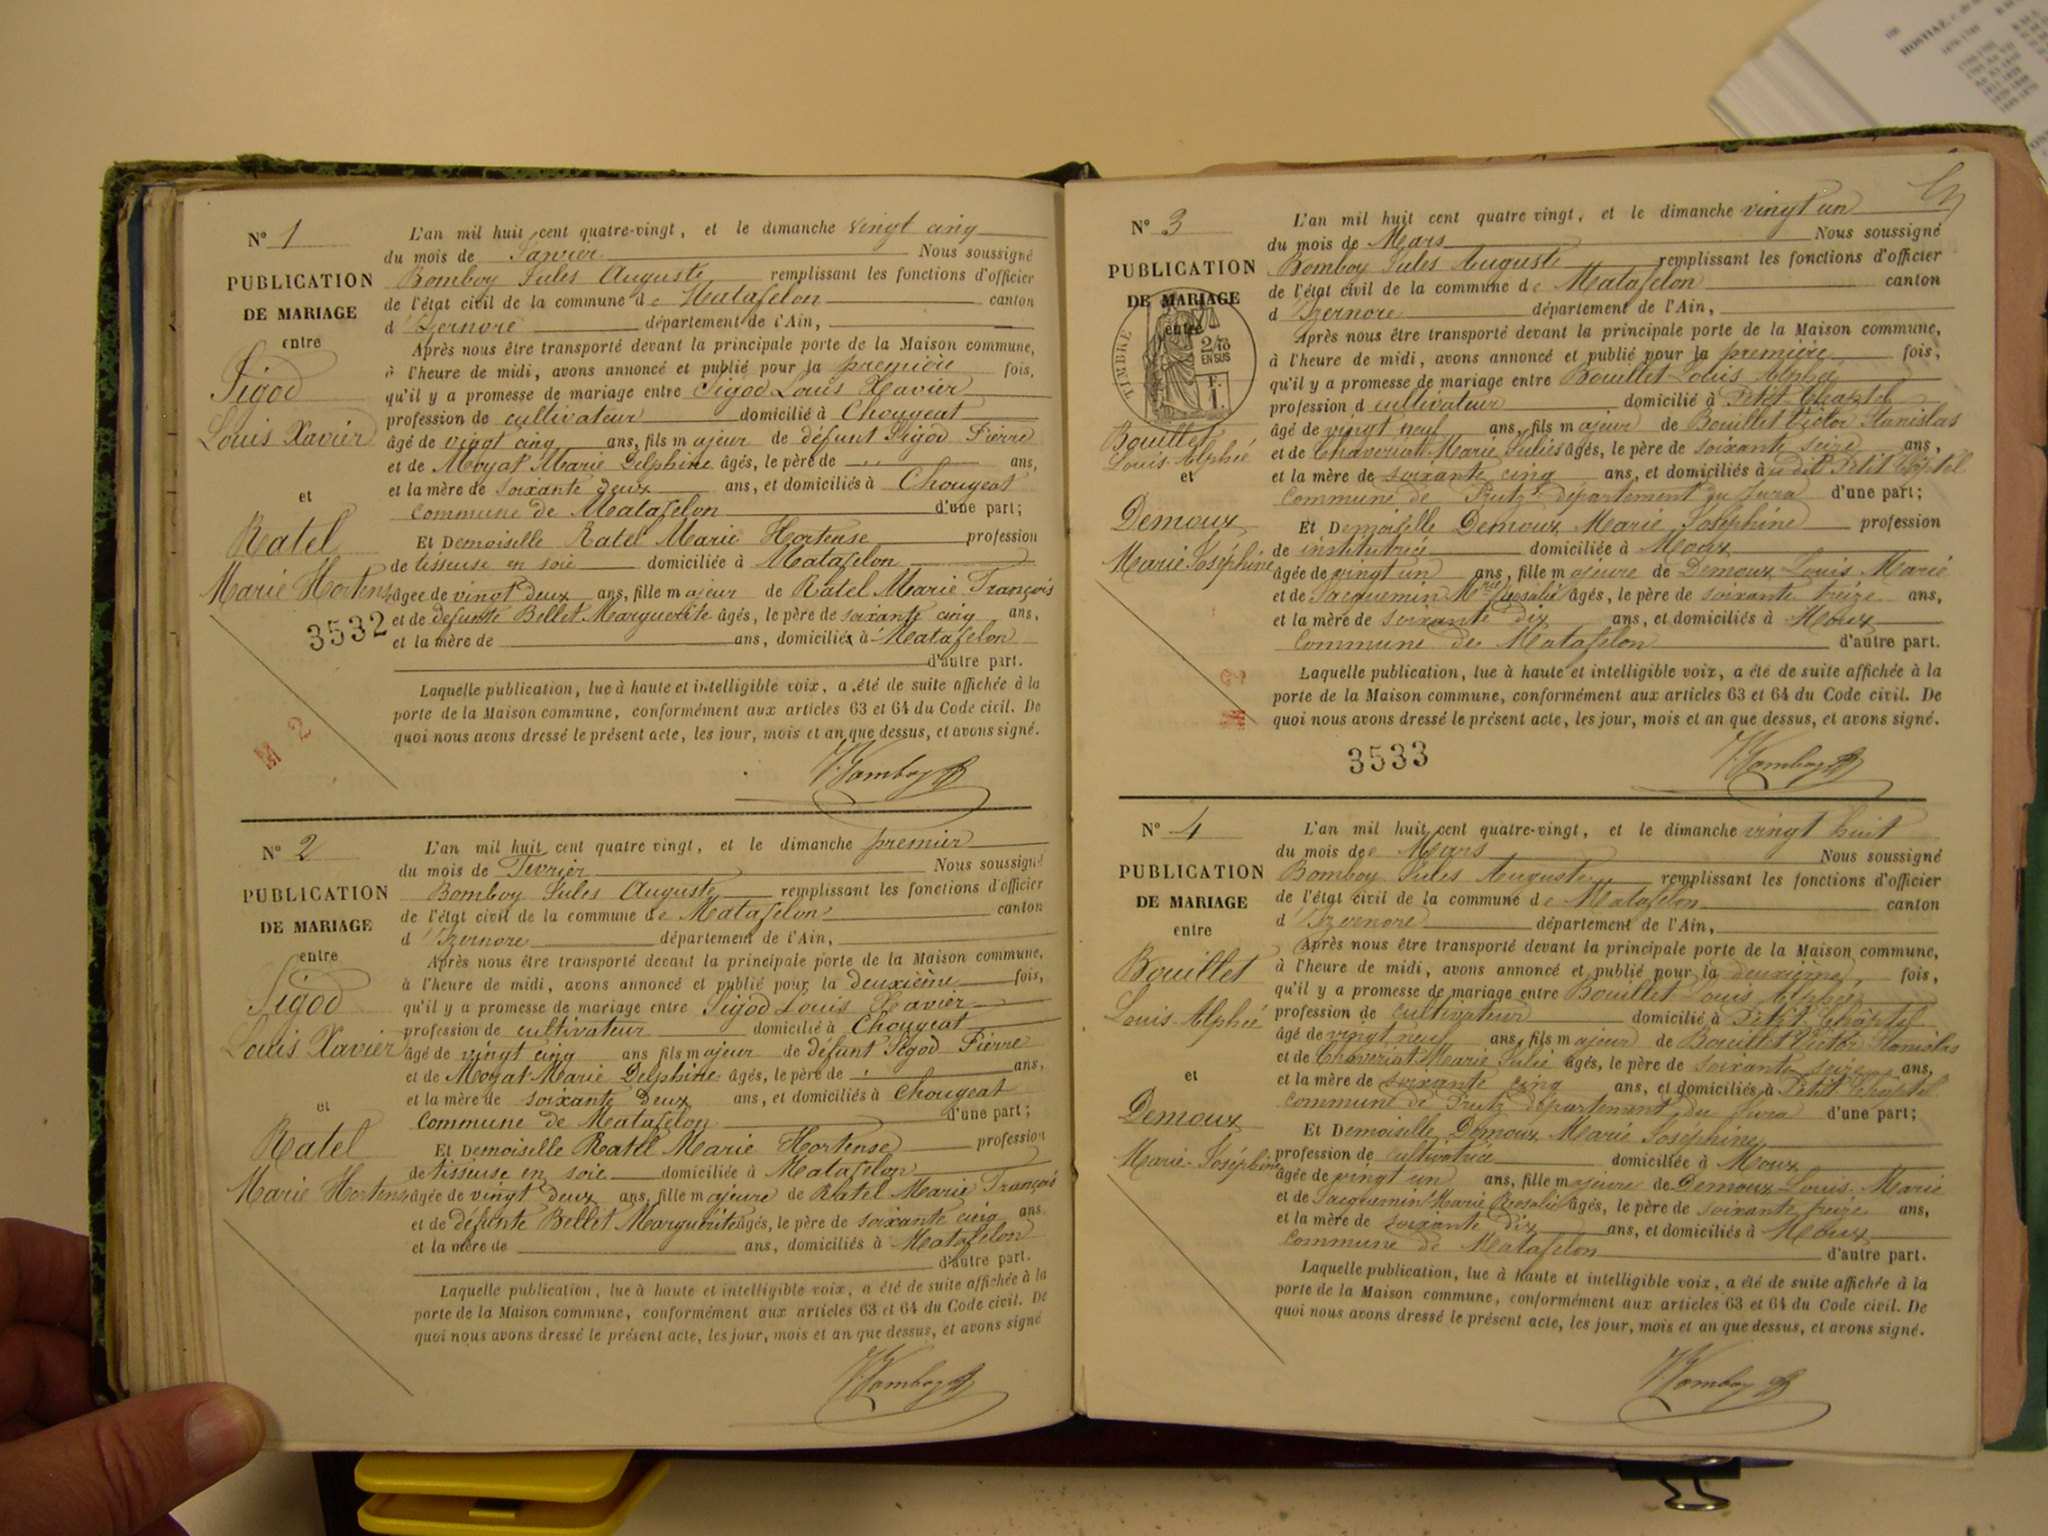 N° 1
PUBLICATION
DE MARIAGE
entre
Sigod
Louis Xavier
et
Ratel
Marie Hortense
3532
M 2
L'an mil huit cent quatre-vingt, et le dimanche vingt cinq
du mois de Janvier Nous soussigné
Bomboy Jules Auguste remplissant les fonctions d'officier
de l'état civil de la commune de Matafelon canton
d'Izernore département de l'Ain,
Après nous être transporté devant la principale porte de la Maison commune,
à l'heure de midi, avons annoncé et publié pour la première fois,
qu'il y a promesse de mariage entre Sigod Louis Xavier
profession de cultivateur domicilié à Chougeat
âgé de vingt cinq ans, fils majeur de défunt Sigod Pierre
et de Moyat Marie Delphine âgés, le père de ans,
et la mère de soixante deux ans, et domiciliés à Chougeat
Commune de Matafelon d'une part;
Et Demoiselle Ratel Marie Hortense profession
de tisseuse en soie domiciliée à Matafelon
âgée de vingt deux ans, fille majeur de Ratel Marie François
et de défunte Bellet Marguerite âgés, le père de soixante cinq ans,
et la mère de ans, domiciliés à Matafelon
d'autre part.
Laquelle publication, lue à haute et intelligible voix, a été de suite affichée à la
porte de la Maison commune, conformément aux articles 63 et 64 du Code civil. De
quoi nous avons dressé le présent acte, les jour, mois et an que dessus, et avons signé.
Bomboy
N° 2
PUBLICATION
DE MARIAGE
entre
Sigod
Louis Xavier
et
Ratel
Marie Hortense
L'an mil huit cent quatre-vingt, et le dimanche premier
du mois de Fevrier Nous soussigné
Bomboy Jules Auguste remplissant les fonctions d'officier
de l'état civil de la commune de Matafelon canton
d'Izernore département de l'Ain,
Après nous être transporté devant la principale porte de la Maison commune,
à l'heure de midi, avons annoncé et publié pour la deuxième fois,
qu'il y a promesse de mariage entre Sigod Louis Xavier
profession de cultivateur domicilié à Chougeat
âgé de vingt cinq ans fils majeur de défunt Sigod Pierre
et de Moyat Marie Delphine âgés, le père de ans,
et la mère de soixante deux ans, et domiciliés à Chougeat
Commune de Matafelon d'une part;
Et Demoiselle Ratel Marie Hortense profession
de tisseuse en soie domiciliée à Matafelon
âgée de vingt deux ans, fille majeure de Ratel Marie François
et de défunte Bellet Marguerite âgés, le père de soixante cinq ans
et la mère de ans, domiciliés à Matafelon
d'autre part.
Laquelle publication, lue à haute et intelligible voix, a été de suite affichée à la
porte de la Maison commune, conformément aux articles 63 et 64 du Code civil. De
quoi nous avons dressé le présent acte, les jour, mois et an que dessus, et avons signé
Bomboy
N° 3
PUBLICATION
DE MARIAGE
entre
TIMBRE
2/10
EN SUS
Bouillet
Louis Alphé
et
Demoux
Marie Joséphine
L'an mil huit cent quatre vingt, et le dimanche vingt un
du mois de Mars Nous soussigné
Bomboy Jules Auguste remplissant les fonctions d'officier
de l'état civil de la commune de Matafelon canton
d'Izernore département de l'Ain,
Après nous être transporté devant la principale porte de la Maison commune,
à l'heure de midi, avons annoncé et publié pour la première fois,
qu'il y a promesse de mariage entre Bouillet Louis Alphé
profession d cultivateur domicilié à Petit Chatel
âgé de vingt neuf ans, fils majeur de Bouillet Victor Stanislas
et de Chaveriat Marie Julie âgés, le père de soixante seize ans,
et la mère de soixante cinq ans, et domiciliés à Petit Châtel
Commune de département du Jura d'une part;
Et Demoiselle Demoux Marie Joséphine profession
de institutrice domiciliée à Moux
âgée de vingt un ans, fille majeure de Demoux Louis Marie
et de Jacquemin Mrie Rosalie âgés, le père de soixante treize ans,
et la mère de soixante dix ans, et domiciliés à Moux
Commune de Matafelon d'autre part.
Laquelle publication, lue à haute et intelligible voix, a été de suite affichée à la
porte de la Maison commune, conformément aux articles 63 et 64 du Code civil. De
quoi nous avons dressé le présent acte, les jour, mois et an que dessus, et avons signé.
3533
Bomboy
N° 4
PUBLICATION
DE MARIAGE
entre
Bouillet
Louis Alphé
et
Demoux
Marie Joséphine
L'an mil huit cent quatre-vingt, et le dimanche vingt huit
du mois de Mars Nous soussigné
Bomboy Jules Auguste remplissant les fonctions d'officier
de l'état civil de la commune de Matafelon canton
d'Izernore département de l'Ain,
Après nous être transporté devant la principale porte de la Maison commune,
à l'heure de midi, avons annoncé et publié pour la deuxième fois,
qu'il y a promesse de mariage entre Bouillet Louis Alphé
profession de cultivateur domicilié à Petit Châtel
âgé de vingt neuf ans, fils majeur de Bouillet Victor Stanislas
et de Chaveriat Marie Julie âgés, le père de soixante seize ans,
et la mère de soixante cinq ans, et domiciliés à Petit Châtel
Commune de département du Jura d'une part;
Et Demoiselle Demoux Marie Joséphine
profession de cultivatrice domiciliée à Moux
âgée de vingt un ans, fille majeure de Demoux Louis Marie
et de Jacquemin Marie Rosalie âgés, le père de soixante treize ans,
et la mère de soixante dix ans, et domiciliés à Moux
Commune de Matafelon d'autre part.
Laquelle publication, lue à haute et intelligible voix, a été de suite affichée à la
porte de la Maison commune, conformément aux articles 63 et 64 du Code civil. De
quoi nous avons dressé le présent acte, les jour, mois et an que dessus, et avons signé.
Bomboy